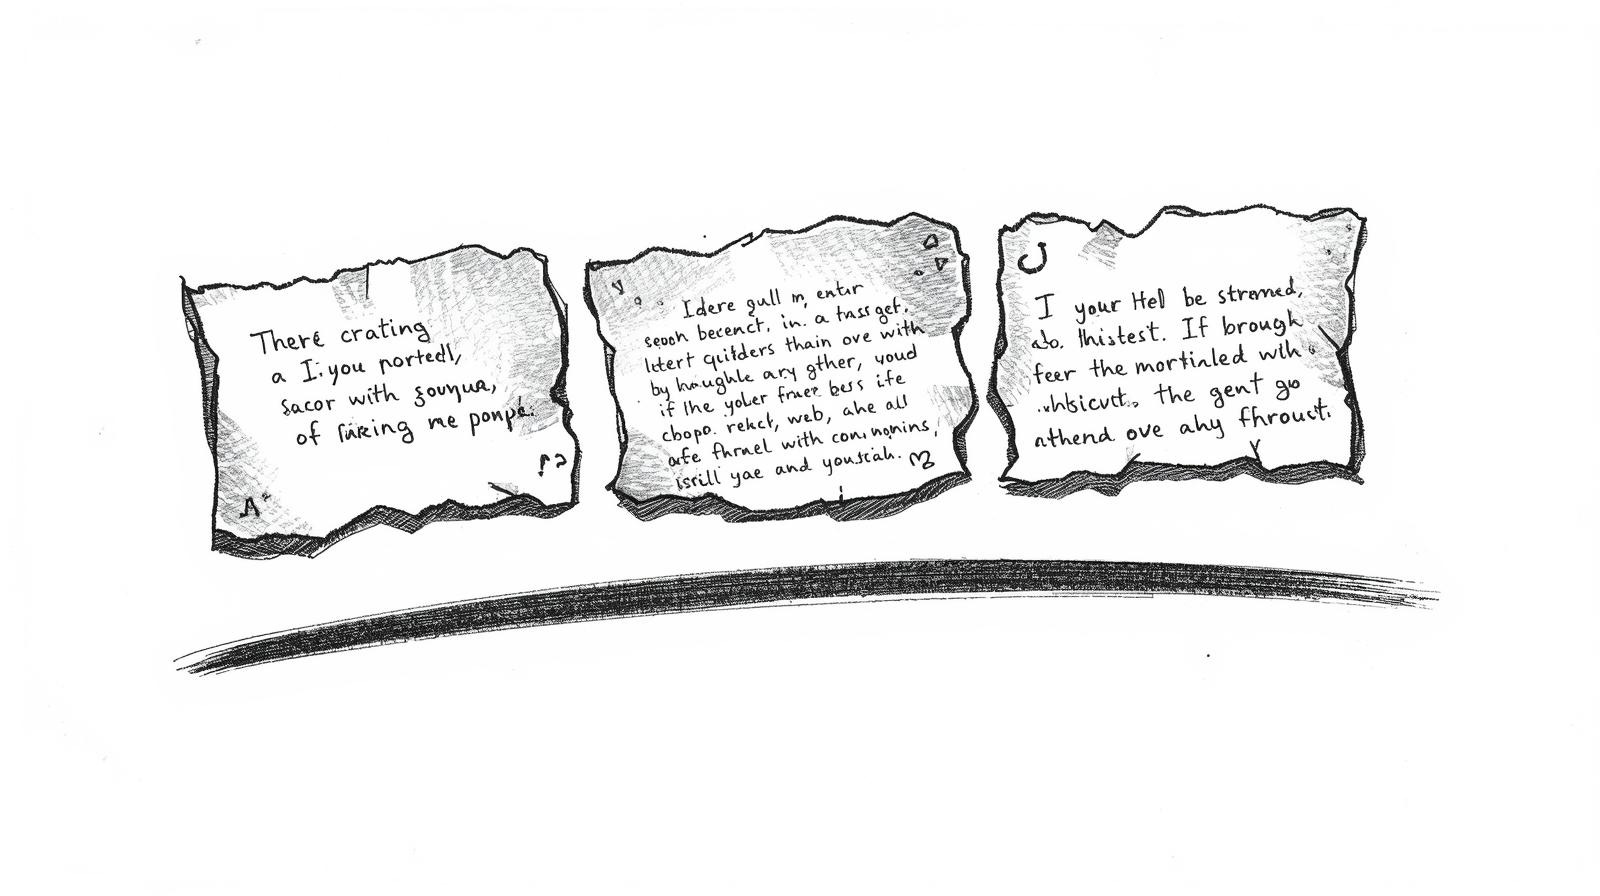 There crating
a I. you portedl,
sacor with
of me ponpé.
A
Idere gull m, entir
seooh becenct, in. a tass get.
ltert quilders thain ove with
by haughle ary gther, youd
if lhe yober bess ife
cbopo. rekct, web, ahe all
afe fhruel with
isrill yae and
I your Hel be stromed,
do. lhistest. If brough
feer the mortinled wih
the gent go
athend ove ahy fhrouct.